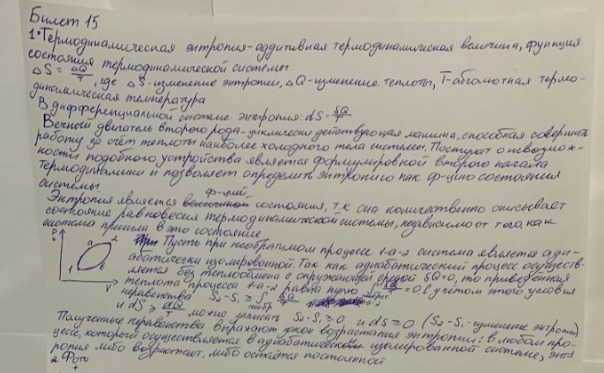 Билет 15
1. Термодинамическая энтропия-аддитивная термодинамическая величина, функция
состояния термодинамической системы
ΔS = ΔQ/T, где ΔS-изменение энтропии, ΔQ-изменение теплоты, T-абсолютная термо-
динамическая температура
В дифференциальной системе энтропия: dS = δQ/T
Вечный двигатель второго рода-циклически действующая машина, способная совершать
работу за счёт теплоты наиболее холодного тела системы. Постулат о невозмож-
ности подобного устройства является формулировкой второго начала
термодинамики и позволяет определить энтропию как ф-цию состояния
системы.
Энтропия является ф-цией состояния, т.к она количественно описывает
состояние равновесия термодинамической системы, независимо от того как
система пришла в это состояние.
P a 2 Пусть при необратимом процессе 1-a-2 система является адиа-
батически изолированной. Так как адиабатический процесс осуществ-
ляется без теплообмена с окружающей средой δQ=0, то приведённая
1 b V теплота процесса 1-a-2 равна нулю ∫ δQ/T = 0, с учётом этого условия
неравенства S₂-S₁ ≥ ∫ δQ/T
и dS ≥ δQ/T можно записать S₂-S₁ ≥ 0 и dS ≥ 0 (S₂-S₁-изменение энтропии)
Полученные неравенства выражают закон возрастания энтропии: в любом про-
цессе, который осуществляется в адиабатической изолированной системе, энт-
ропия либо возрастает, либо остаётся постоянной
2 Фото
+